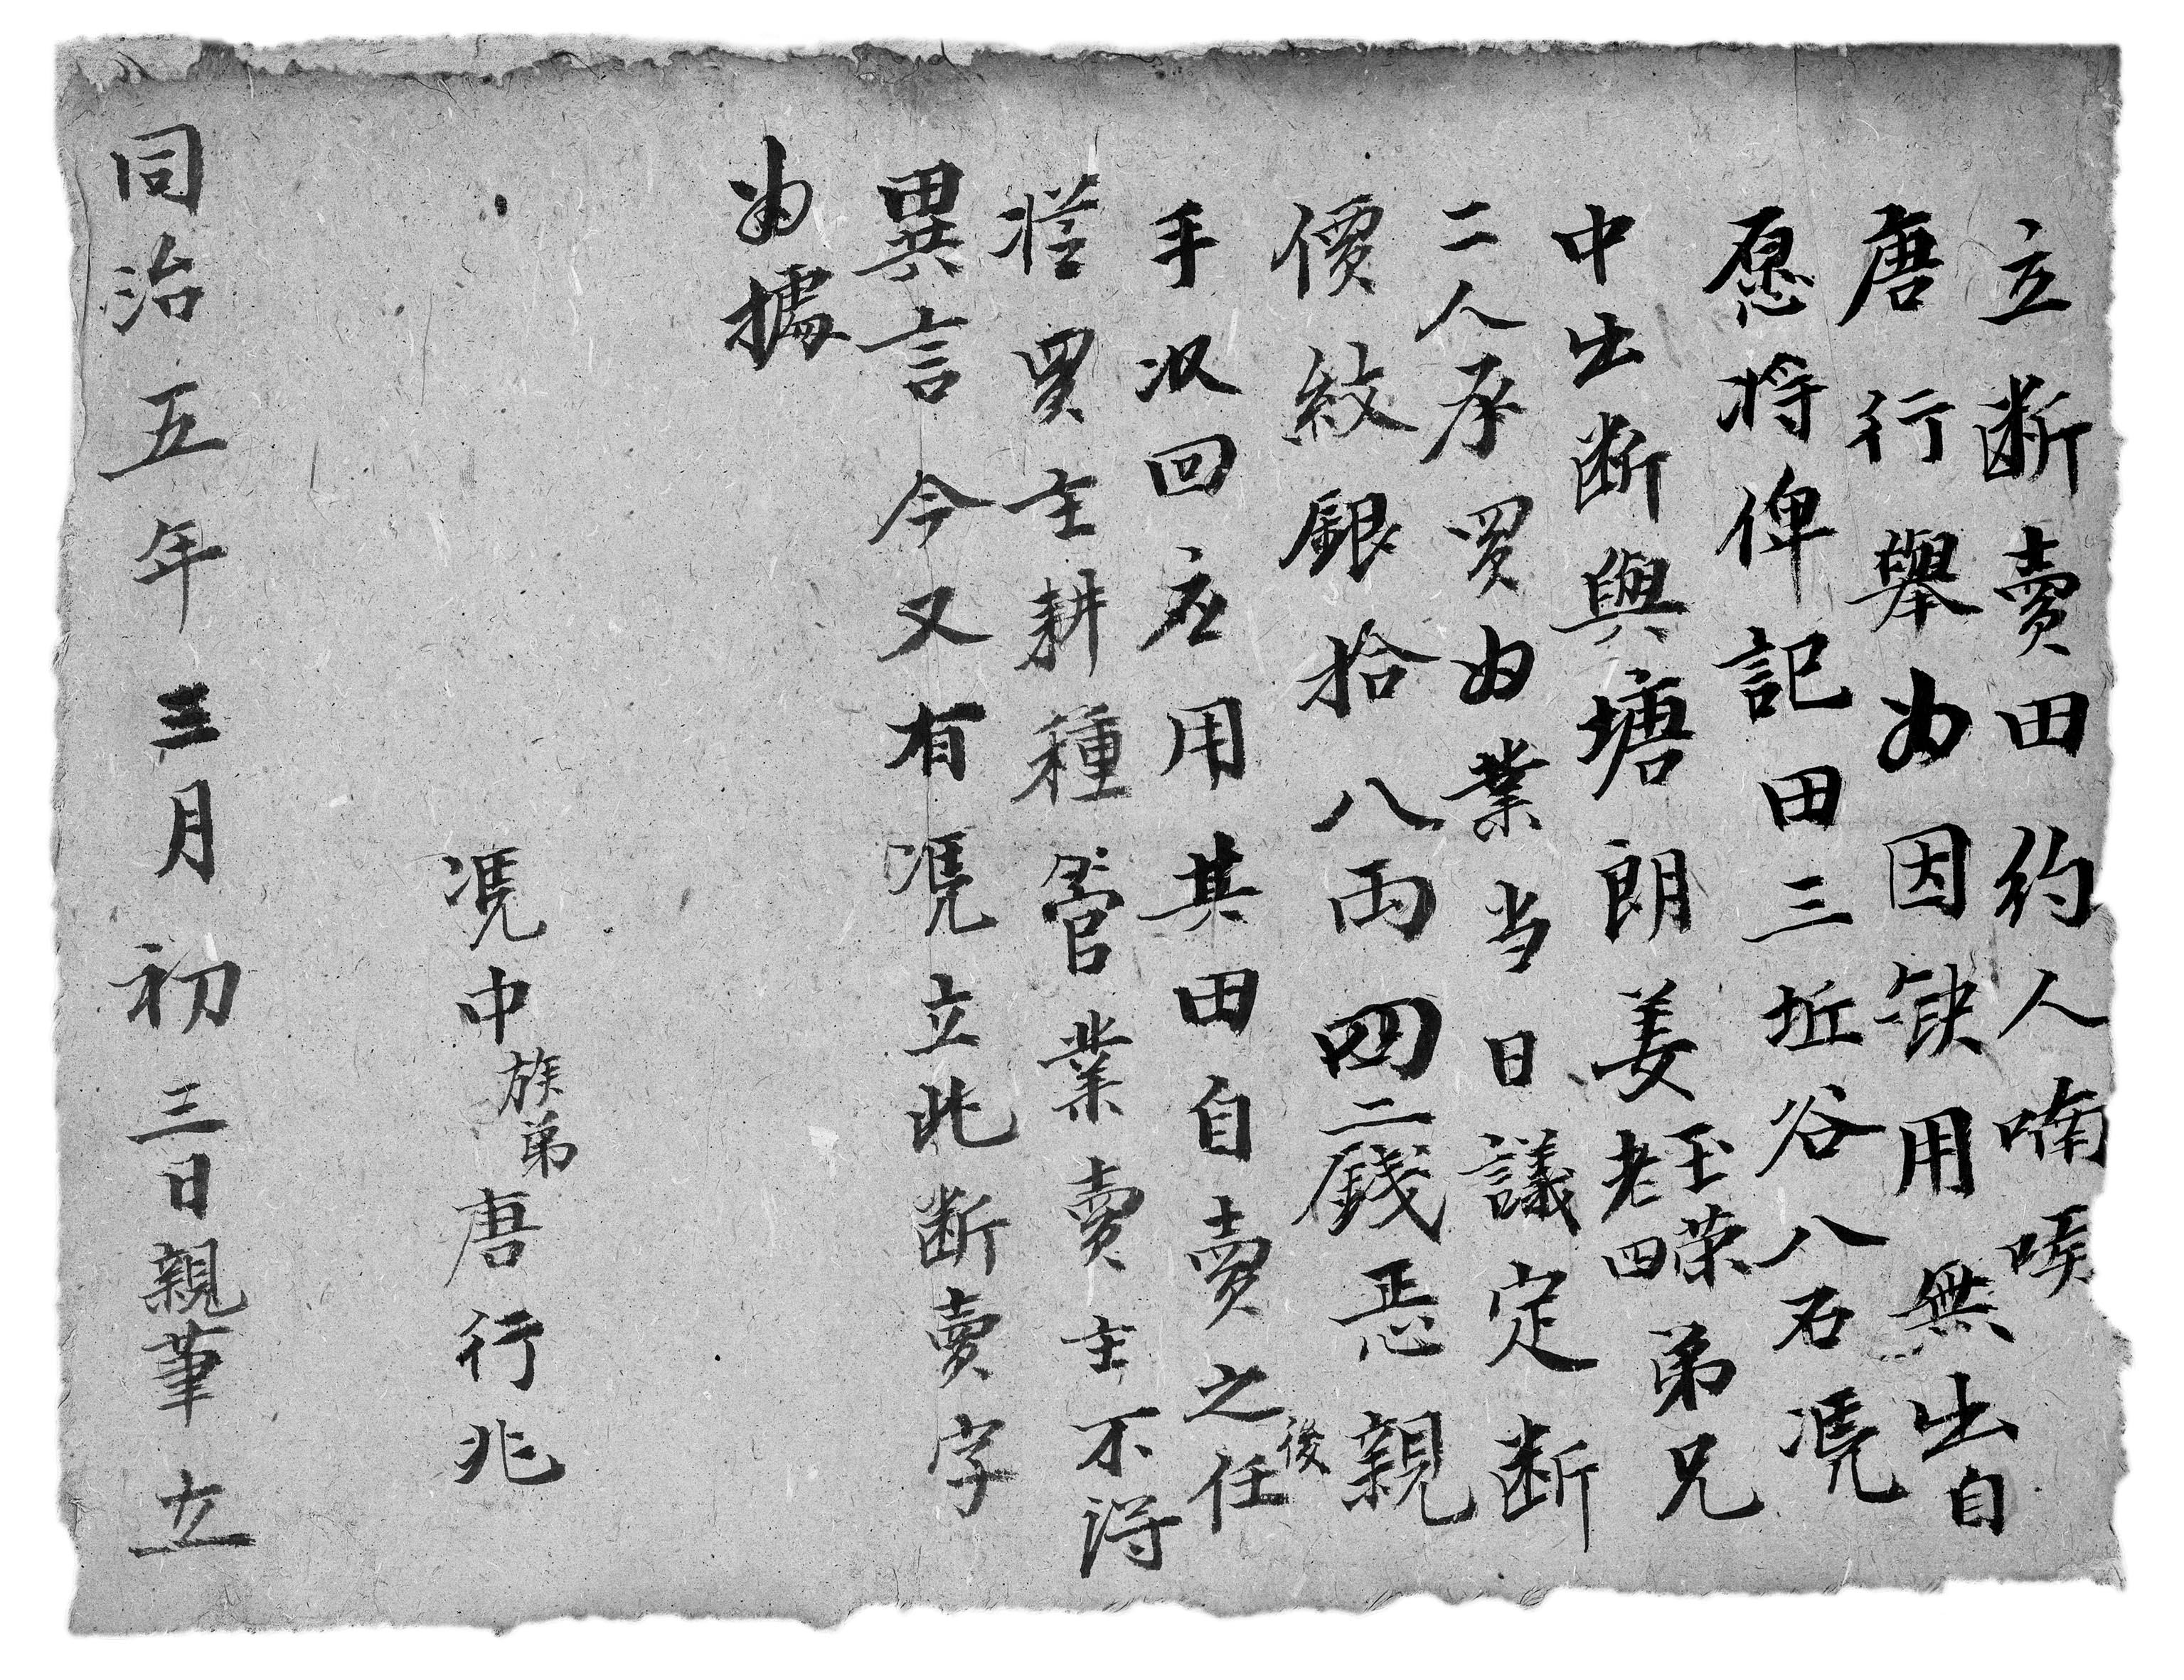 立断賣田約人喃唉
唐行舉為因缺用無出自
愿将俾記田三坵谷八石凴
中出断與塘朗姜玉荣老四弟兄
二人承買为業当日議定断
價紋銀拾八両四二錢恶親
手収回应用其田自賣之後任
從買主耕種管業賣主不淂
異言今又有凴立此断賣字
为據
凴中族弟唐行兆
同治五年三月初三日親筆立